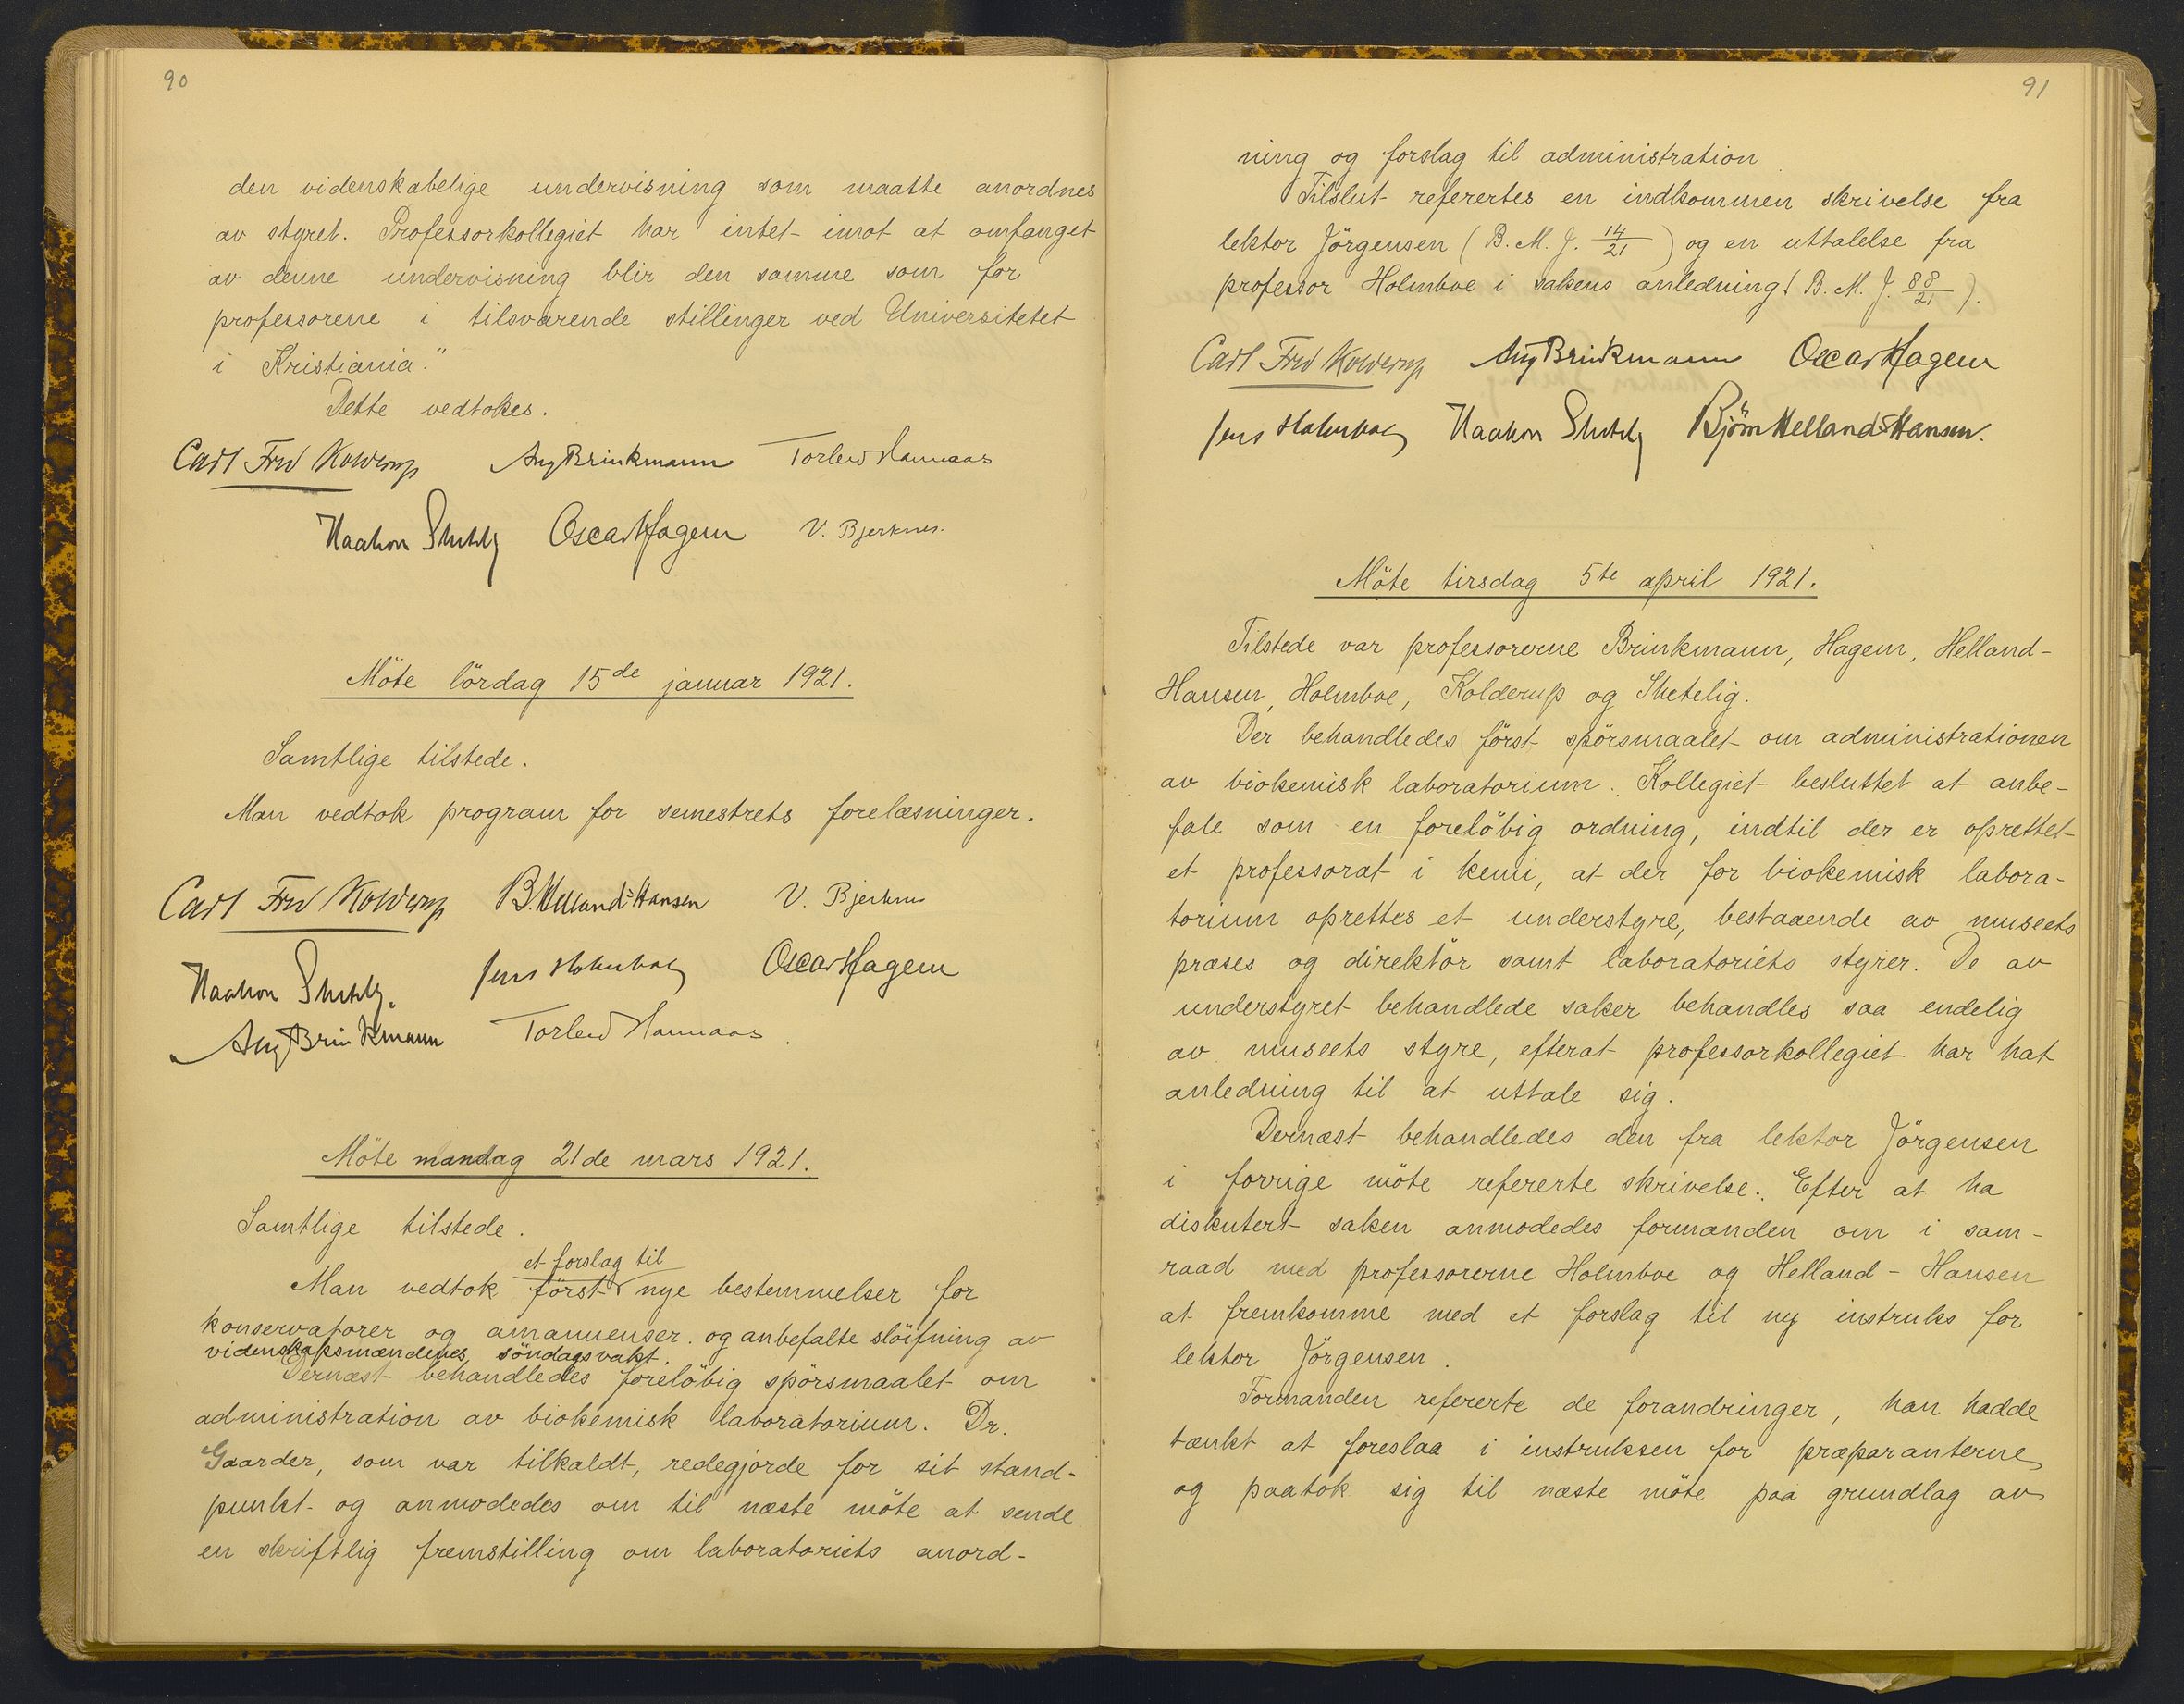 90
den videnskabelige undervisning som maatte anordnes
av styret. Professorkollegiet har intet imot at omfanget
av denne undervisning blir den samme som for
professorene i tilsvarende stillinger ved Universitetet
i Kristiania."
Dette vedtokes.
Carl Fred Kolderup Aug Brinkmann Torleiv Hannaas
Haakon Shetelig Oscar Hagem V. Bjerknes.
Möte lördag 15de januar 1921.
Samtlige tilstede.
Man vedtok program for semestrets forelæsninger.
Carl Fred Kolderup B. Helland-Hansen V. Bjerknes
Haakon Shetelig. Jens Holmboe Oscar Hagem
Aug Brinkmann Torleiv Hannaas
Möte mandag 21de mars 1921.
Samtlige tilstede.
et forslag til
Man vedtok först nye bestemmelser for
konservatorer og amanuenser. og anbefalte slöifning av
videnskapsmændenes söndagsvakt.
Dernæst behandledes foreløbig spörsmaalet om
administration av biokemisk laboratorium. Dr.
Gaarder, som var tilkaldt, redegjorde for sit stand-
punkt og anmodedes om til næste möte at sende
en skriftlig fremstilling om laboratoriets anord-
91
ning og forslag til administration
Tilslut referertes en indkommen skrivelse fra
lektor Jörgensen (B. M. J. 14/21) og en uttalelse fra
professor Holmboe i sakens anledning (B. M. J. 88/21).
Carl Fred Kolderup Aug Brinkmann Oscar Hagem
Jens Holmboe Haakon Shetelig Björn Helland-Hansen.
Möte tirsdag 5te april 1921.
Tilstede var professorerne Brinkmann, Hagem, Helland-
Hansen, Holmboe, Kolderup og Shetelig.
Der behandledes först spörsmaalet om administrationen
av biokemisk laboratorium. Kollegiet besluttet at anbe-
fale som en forelöbig ordning, indtil der er oprettet
et professorat i kemi, at der for biokemisk labora-
torium oprettes et understyre, bestaaende av museets
præses og direktör samt laboratoriets styrer. De av
understyret behandlede saker behandles saa endelig
av museets styre, efterat professorkollegiet har hat
anledning til at uttale sig.
Dernæst behandledes den fra lektor Jörgensen
i forrige möte refererte skrivelse. Efter at ha
diskutert saken anmodedes formanden om i sam-
raad med professorerne Holmboe og Helland-Hansen
at fremkomme med et forslag til ny instruks for
lektor Jörgensen.
Formanden refererte de forandringer, han hadde
tænkt at foreslaa i instruksen for præparanterne
og paatok sig til næste möte paa grundlag av